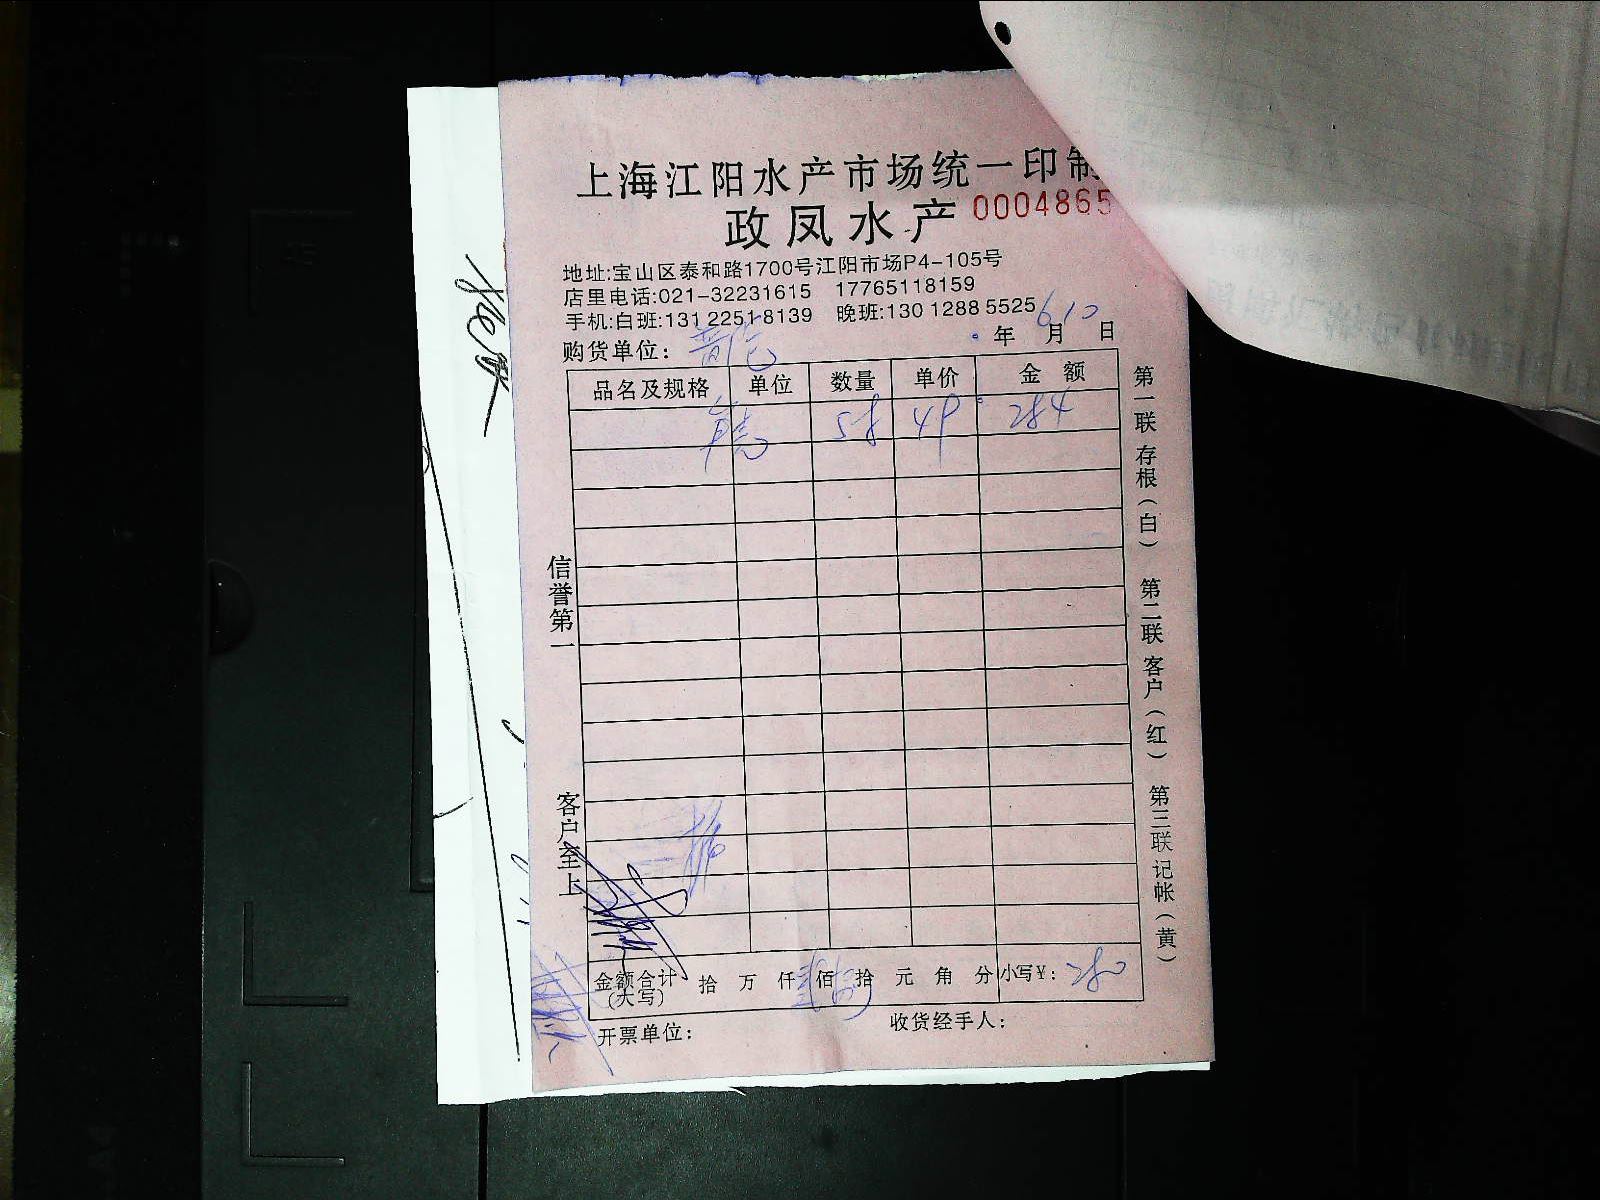 上海江阳水产市场统一印制
0004865
政凤水产
地址:宝山区泰和路1700号江阳市场P4-105号
店里电话:021-32231615 17765118159
手机:白班:131 2251 8139 晚班:130 1288 5525
购货单位:
6 10
年 月 日
品名及规格 单位 数量 单价 金额
58 49 284
信誉第一
客户至上
第一联 存根(白) 第二联 客户(红) 第三联 记帐(黄)
金额合计 拾 万 仟 佰 拾 元 角 分 小写¥: 280
(大写)
开票单位: 收货经手人: